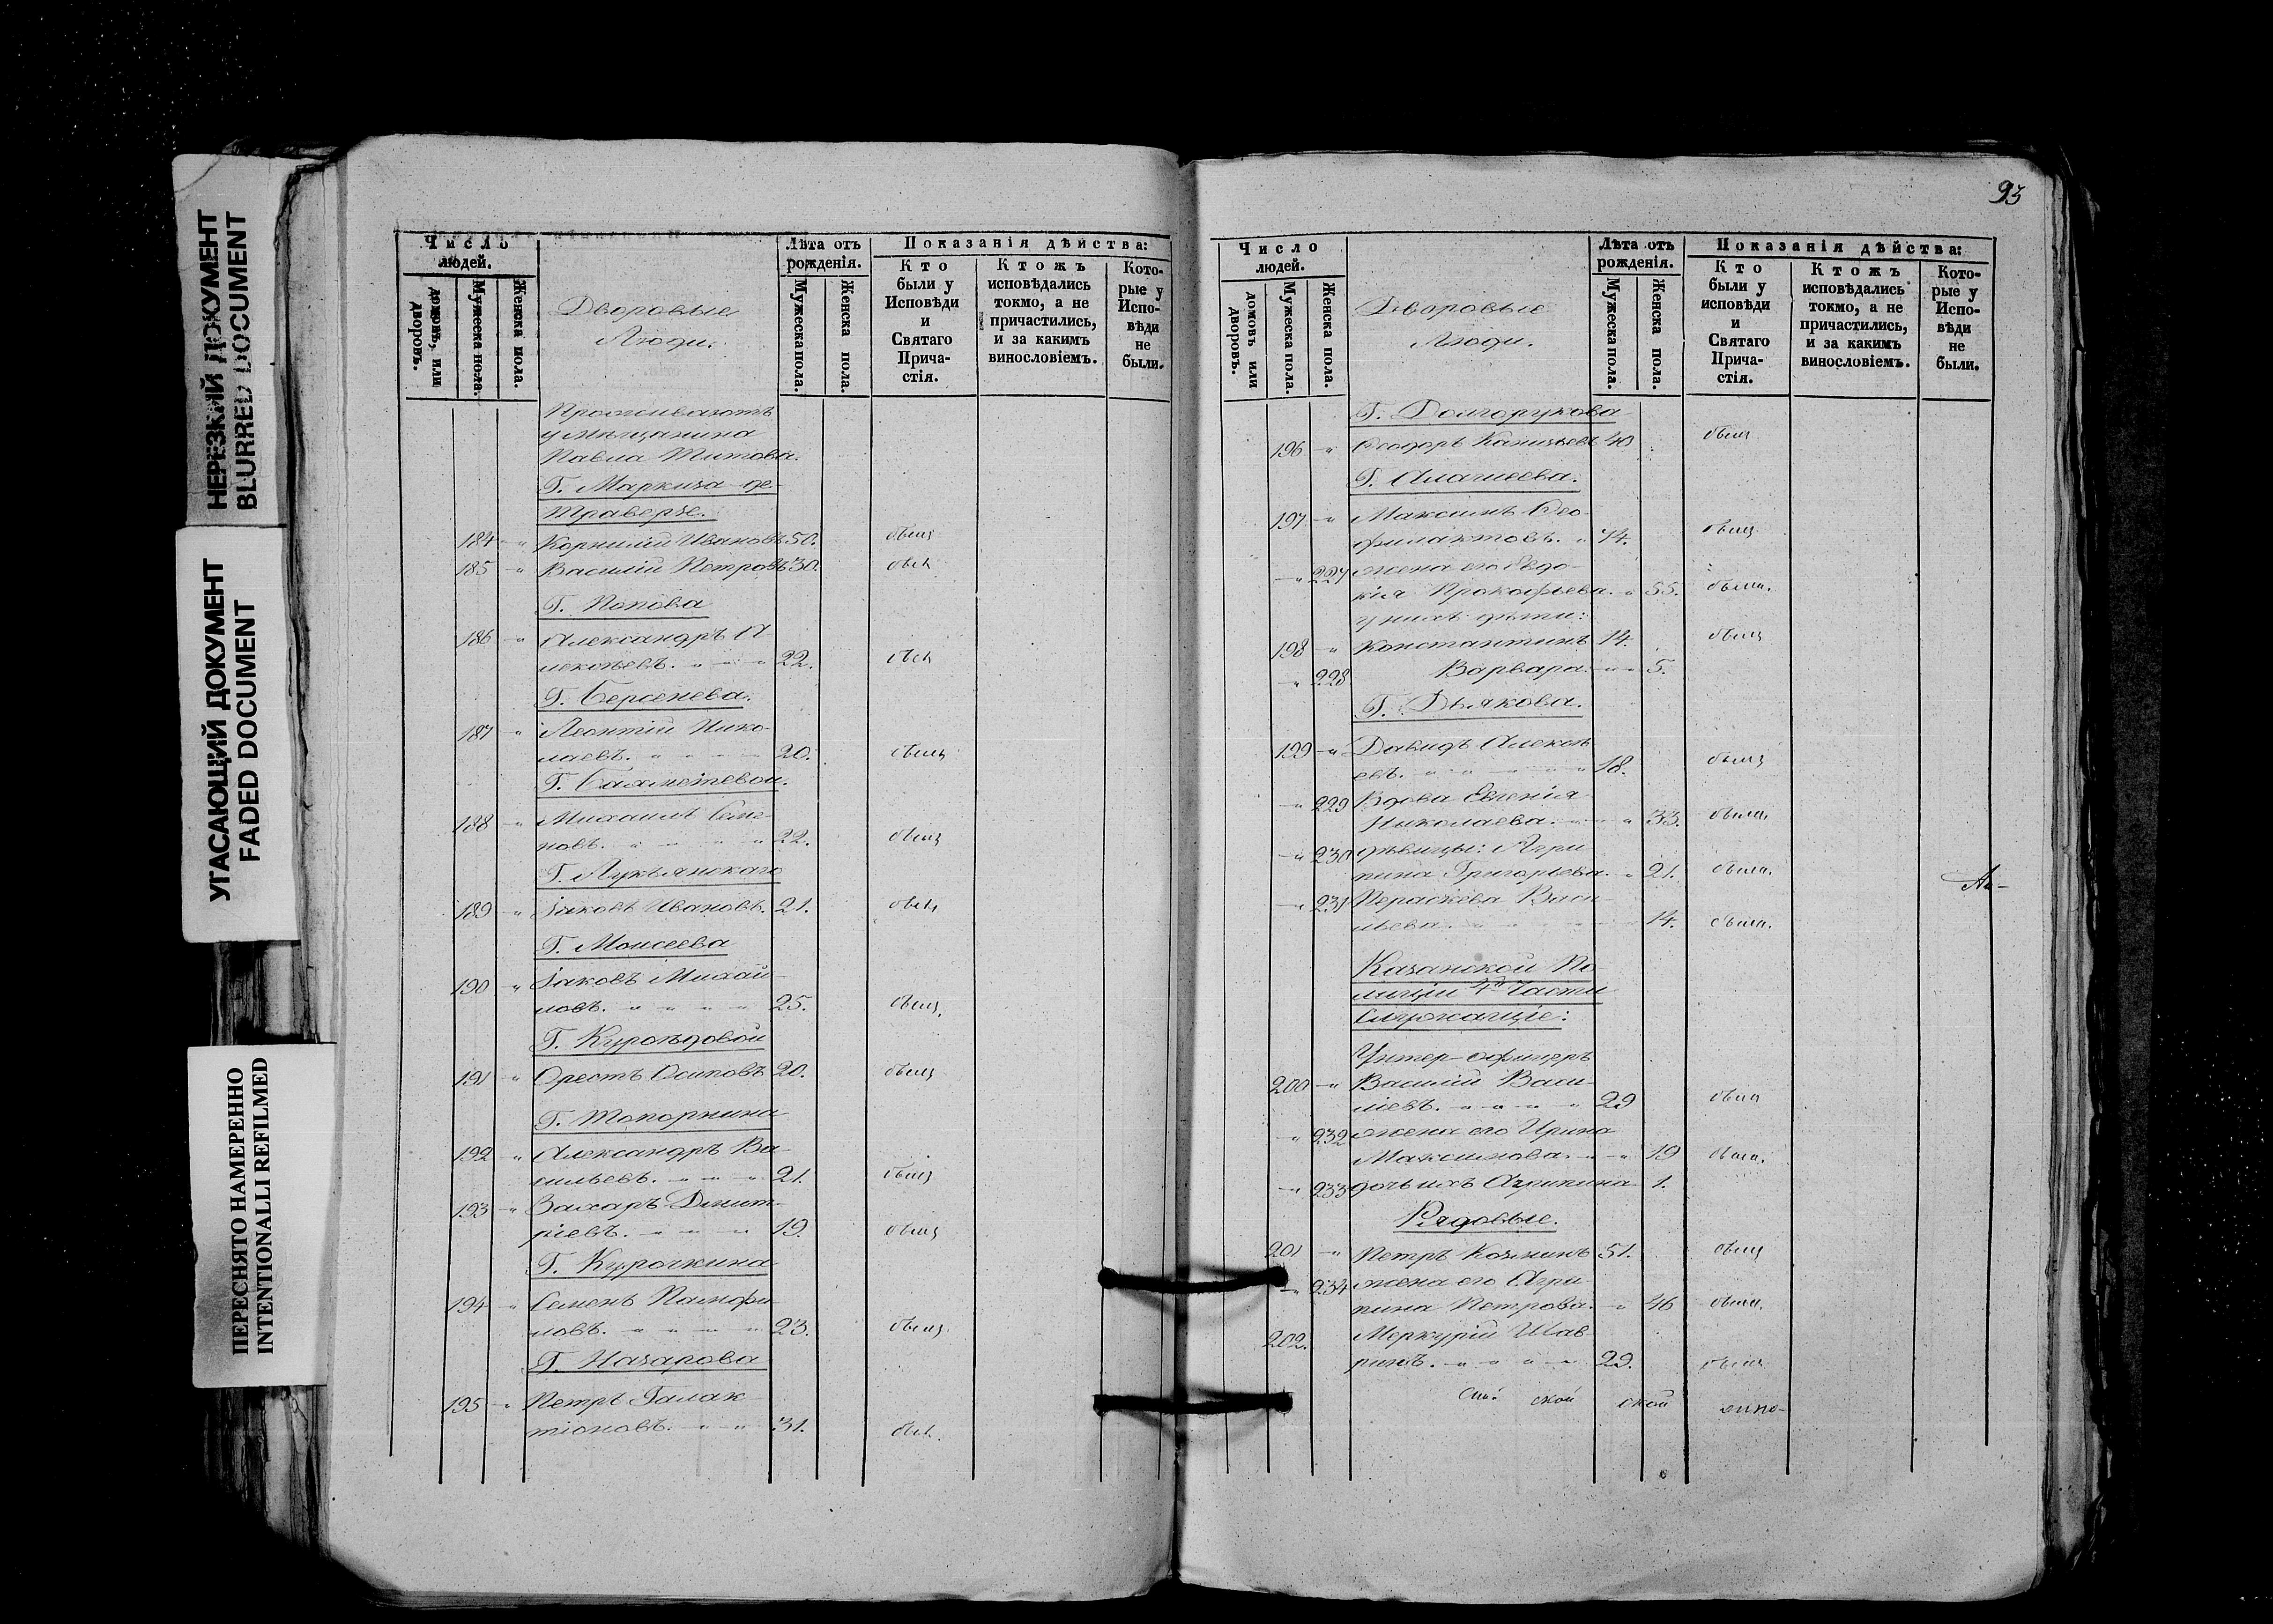 НЕРЕЗКИЙ ДОКУМЕНТ
BLURRED DOCUMENT
УГАСАЮЩИЙ ДОКУМЕНТ
FADED DOCUMENT
ПЕРЕСНЯТО НАМЕРЕННО
INTENTIONALLI REFILMED
Число людей.
домовъ, или дворовъ.
Мужеска пола.
Женска пола.
Дворовые
Люди.
Лѣта отъ рожденія.
Мужеска пола.
Женска пола.
Показанія дѣйства:
Кто были у Исповѣди и Святаго Причастія.
Ктожъ исповѣдались токмо, а не причастились, и за какимъ винословіемъ.
Которые у Исповѣди не были.
Проживаютъ
у мѣщанина
Павла Титова.
Г. Маркиза де-
Траверзе.
184 " Корнилій Ивановъ 50. былъ
185 " Василій Петровъ 30. былъ
Г. Попова
186 " Александръ А
лексѣевъ. " " " 22. былъ
Г. Берсенева.
187 " Леонтій Нико-
лаевъ. " " " 20. былъ
Г. Бахметевой.
188 " Михаилъ Семе-
новъ. " " " " 22. былъ
Г. Лукъянскаго
189 " Іаковъ Ивановъ. 21. былъ
Г. Моисеева
190 " Іаковъ Михай-
ловъ. " " " " 25. былъ
Г. Куроѣдовой
191 " Орестъ Осиповъ 20. былъ
Г. Топорнина
192 " Александръ Ва-
сильевъ. " " " 21. былъ
193 " Захаръ Димит-
ріевъ. " " " 19. былъ
Г. Курочкина
194 " Семенъ Памфи-
ловъ. " " " " 23. былъ
Г. Назарова
195 " Петръ Галак-
тіоновъ. " " 31. былъ
93
Число людей.
домовъ или дворовъ.
Мужеска пола.
Женска пола.
Дворовые
Люди.
Лѣта отъ рожденія.
Мужеска пола.
Женска пола.
Показанія дѣйства:
Кто были у исповѣди и Святаго Причастія.
Ктожъ исповѣдались токмо, а не причастились, и за какимъ винословіемъ.
Которые у Исповѣди не были.
Г. Долгорукова
196 " Ѳеодоръ 40 былъ
Г.
197 " Максимъ Ѳео-
филактовъ. " 74. былъ
" 227 жена его Евдо-
кія Прокофьева. " 55. была.
у нихъ дѣти:
198 " Константинъ 14. былъ
" 228 Варвара. " " 5.
Г. Дьякова.
199 " Давидъ Алексѣ
евъ. " " " " " 18. былъ
" 229 Вдова Евгенія
Николаева. " " " 33. была.
" 230 дѣвицы: Агри
пина Григорьева. " 21. была.
" 231 Пераскева Васи
льева. 14. была.
Казанской По
лиціи 4й Части
Служащіе:
Унтер-офицеръ
200 " Василій Васи-
ліевъ. " " " " 29 былъ
" 232 жена его Ирина
Максимова. " " 19 была.
" 233 дочь ихъ Агрипина 1.
Рядовые.
201 " Петръ Козминъ 51. былъ
" 234 жена его Агри
пина Петрова. " 46 была.
202. Меркурій Шав
ринъ. " " " " 29. былъ
ской ской